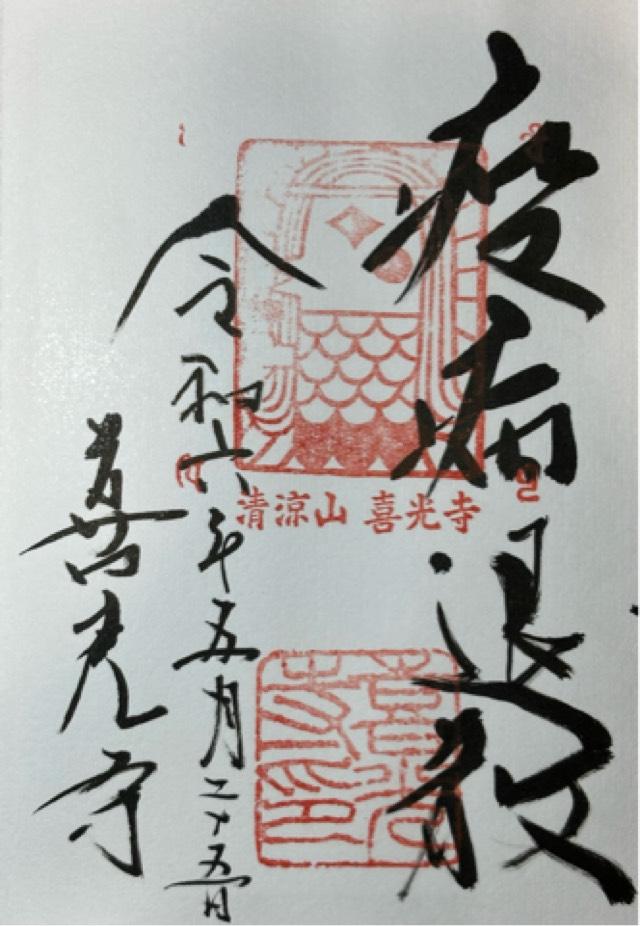 疫病退散
令和六年五月二十五日
喜光寺
清涼山 喜光寺